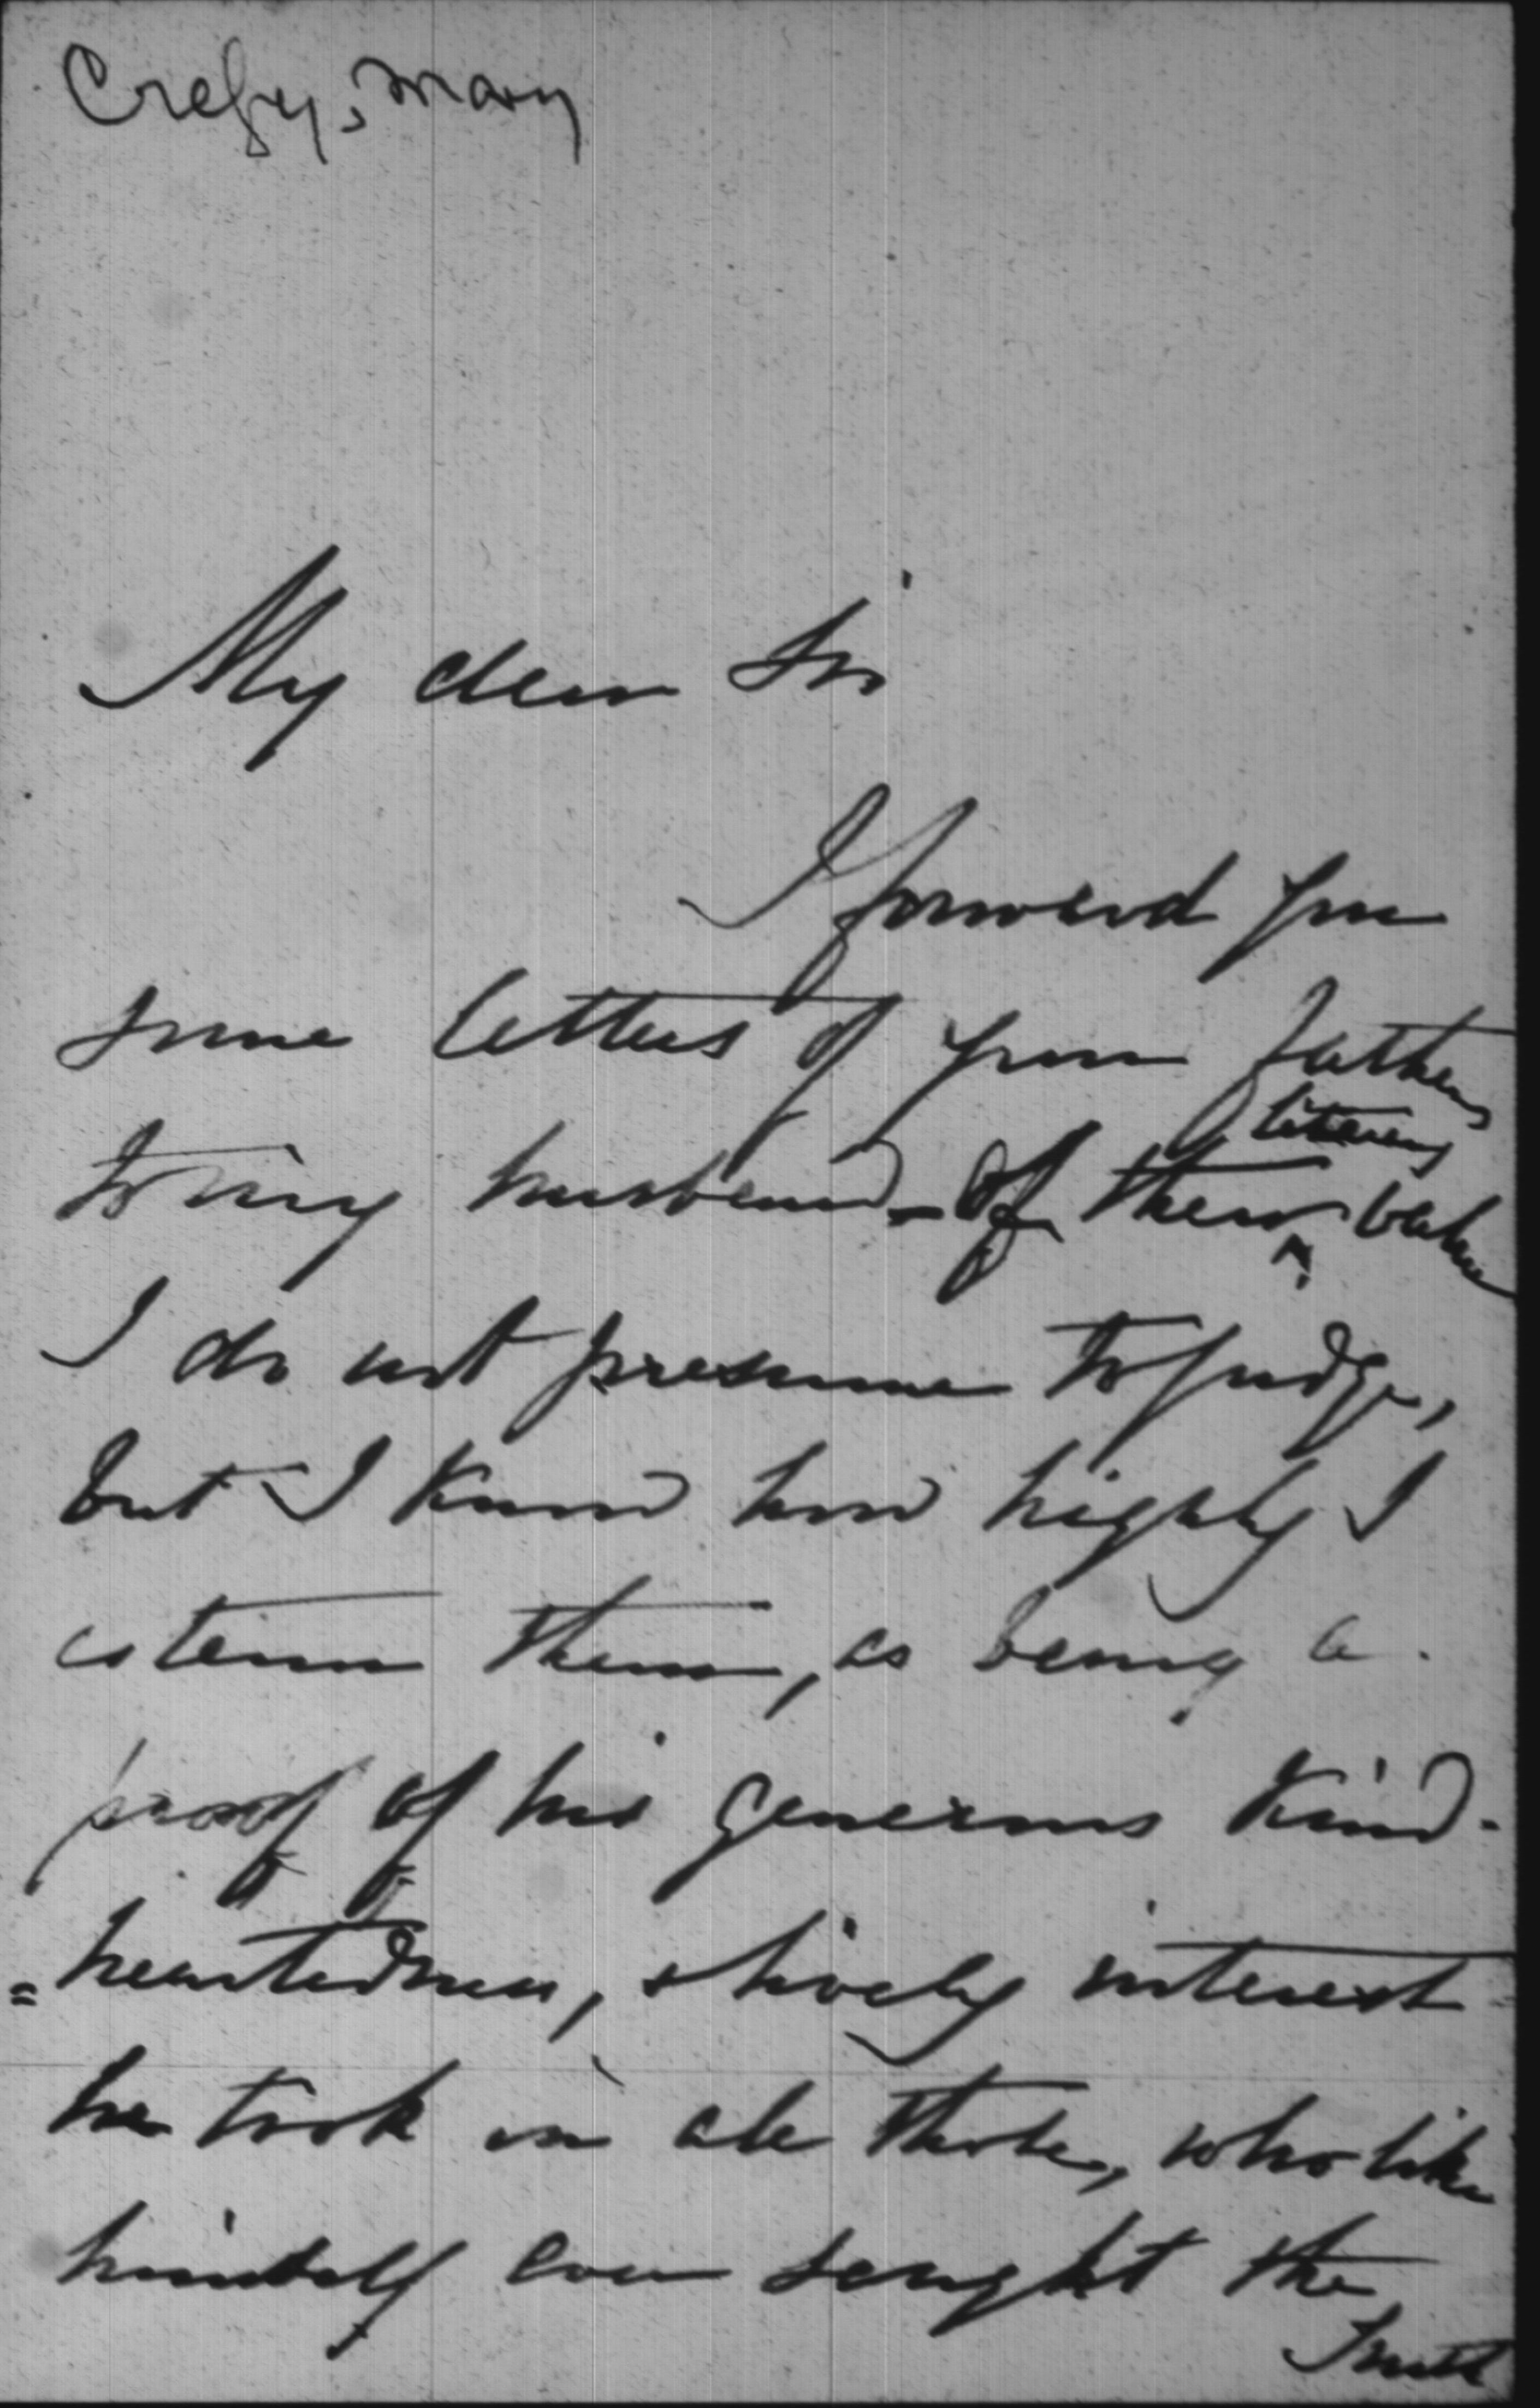 Crefy, Mary
My dear Sir
I forward you
some letters of your fathers
literary
to my husband - Of their ^ value
I do not presume to judge,
but I know how highly I
esteem them, as being a
proof of his generous kind-
=heartedness, & lively interest
he took in all those, who like
himself ever sought the
Truth